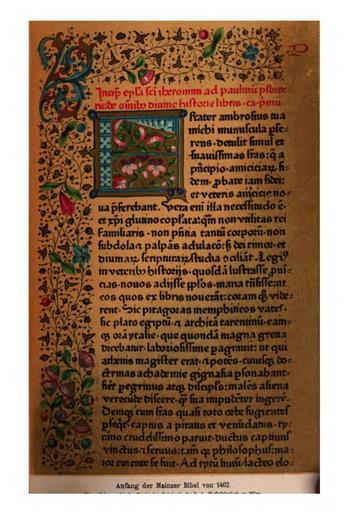 Incip epla sci iheronimi ad paulinu psbite
ru: de omib⁹ diuine historie libris. ca. pmu.
Frater ambrosius tua
michi munuscula pfe-
rens. detulit simul et
suauissimas lras: q a
pncipio amiciciar fi-
dem. pbate iam fidei:
et veteris amicicie no-
ua pferebant. Vera eni illa necessitudo e.
et xpi glutino copulata: qm non vtilitas rei
familiaris. non pntia tantu corporu: non
subdola et palpas adulaco: s dei timor. et
diuinar scripturar studia ociliat. Legi⁹
in veterib⁹ historijs. quosda lustrasse puin-
cias. nouos adisse pplos. maria trasisse: ut
eos quos ex libris nouerat: coram q⁹ vide-
rent. Sic pitagoras memphiticos vates.
sic plato egiptu. et archita tarentinu. eam-
q⁹ ora ytalie. que quonda magna grecia
dicebatur. laboriosissime pagrauit: ut qui
athenis magister erat et potes. cuiusq⁹ doc-
trinas achademie gignasia psonabant.
fieret pegrinus atq⁹ discipls: males aliena
verecude discere. q⁹ sua impudeter ingere.
Deniq⁹ cum lras quasi toto orbe fugientes
pseqt. captus a piratis et venundatus. ty-
rano crudelissimo paruit. ductus captiuus
vinctus et seruus: tam q⁹ philosophus: ma-
ior emente se fuit. Ad tytu liuiu. lacteo elo-
Anfang der Mainzer Bibel von 1462.